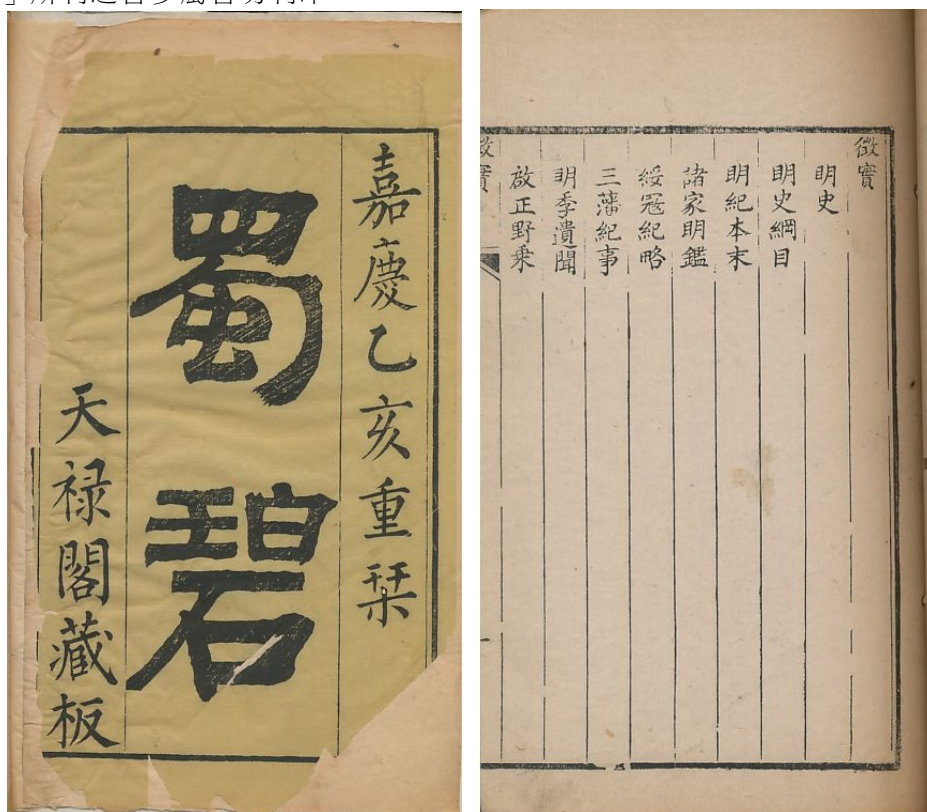 嘉慶乙亥重栞
蜀碧
天禄閣藏板
徵實
明史
明史綱目
明紀本末
諸家明鑑
綏冦紀略
三藩紀事
明季遺聞
啟正野乗